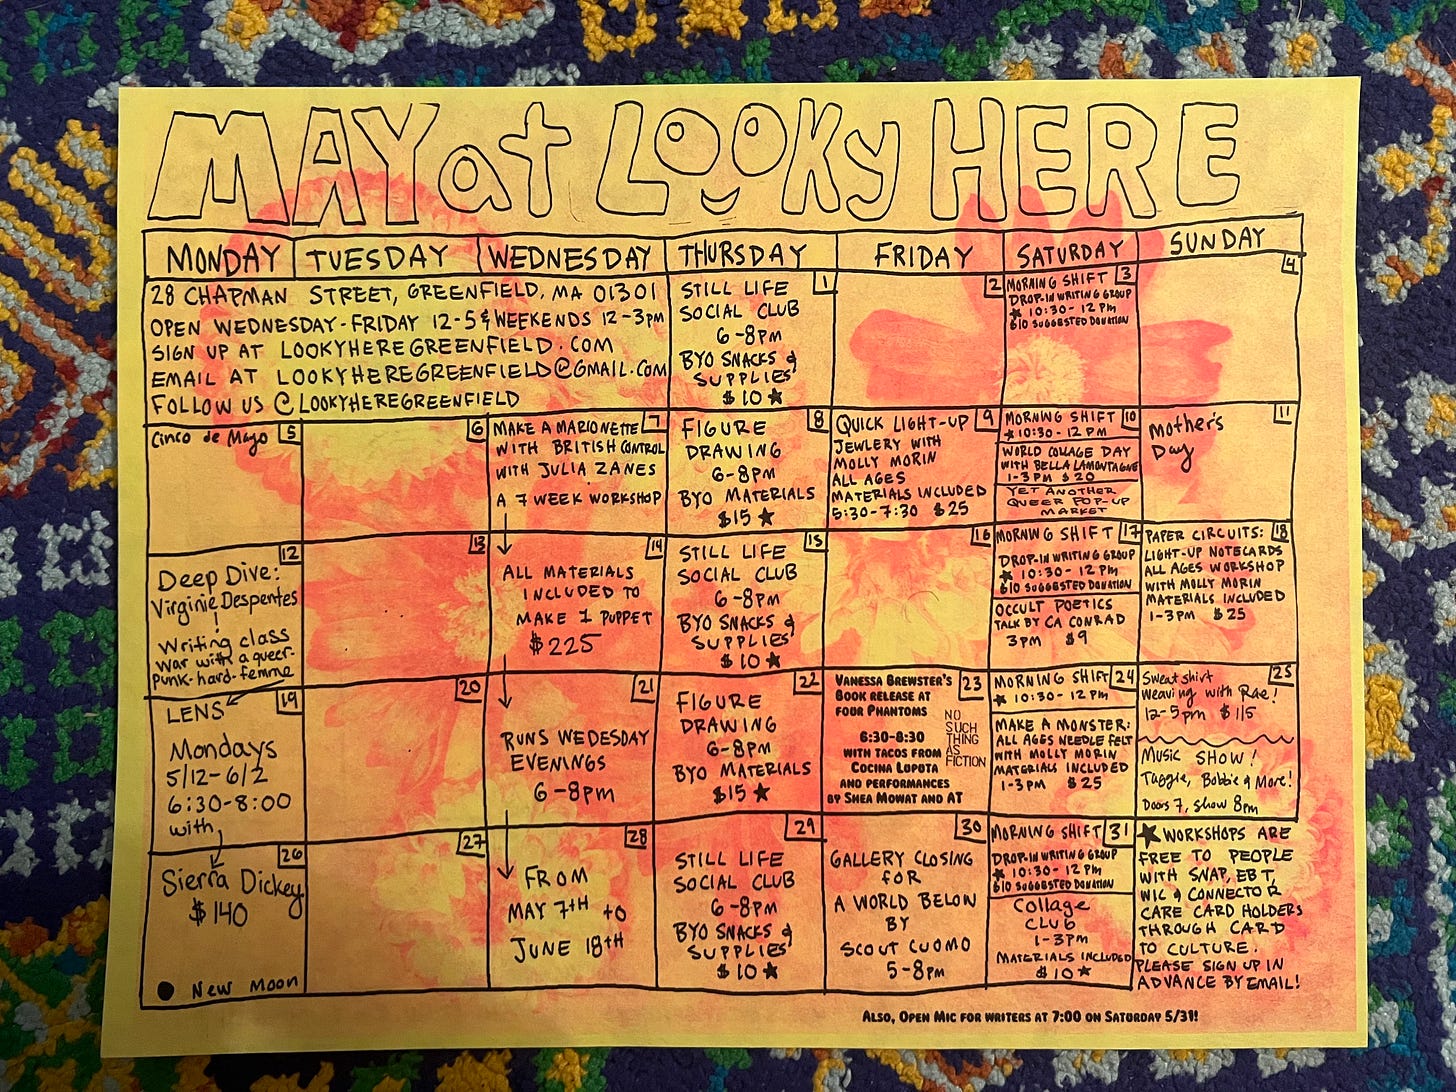 MAY at LOOKY HERE
MONDAY TUESDAY WEDNESDAY THURSDAY FRIDAY SATURDAY SUNDAY
28 CHAPMAN STREET, GREENFIELD, MA 01301
OPEN WEDNESDAY-FRIDAY 12-5 & WEEKENDS 12-3PM
SIGN UP AT LOOKYHEREGREENFIELD.COM
EMAIL AT LOOKYHEREGREENFIELD@GMAIL.COM
FOLLOW US @LOOKYHEREGREENFIELD
1
STILL LIFE
SOCIAL CLUB
6-8PM
BYO SNACKS &
SUPPLIES
$10 ★
2
3
MORNING SHIFT
DROP-IN WRITING GROUP
★ 10:30-12PM
$10 SUGGESTED DONATION
4
5
Cinco de Mayo
6
7
MAKE A MARIONETTE
WITH BRITISH CONTROL
WITH JULIA ZANES
A 7 WEEK WORKSHOP
8
FIGURE
DRAWING
6-8PM
BYO MATERIALS
$15 ★
9
QUICK LIGHT-UP
JEWLERY WITH
MOLLY MORIN
ALL AGES
MATERIALS INCLUDED
5:30-7:30 $25
10
MORNING SHIFT
★ 10:30-12PM
WORLD COLLAGE DAY
WITH BELLA LAMONTAGNE
1-3PM $20
YET ANOTHER
QUEER POP-UP
MARKET
11
Mother's
Day
12
Deep Dive:
Virginie Despentes
!
Writing class
War with a queer-
punk-hard-femme
13
14
ALL MATERIALS
INCLUDED TO
MAKE 1 PUPPET
$225
15
STILL LIFE
SOCIAL CLUB
6-8PM
BYO SNACKS &
SUPPLIES
$10 ★
16
17
MORNING SHIFT
DROP-IN WRITING GROUP
★ 10:30-12PM
$10 SUGGESTED DONATION
OCCULT POETICS
TALK BY CA CONRAD
3PM $9
18
PAPER CIRCUITS:
LIGHT-UP NOTECARDS
ALL AGES WORKSHOP
WITH MOLLY MORIN
MATERIALS INCLUDED
1-3PM $25
19
LENS
Mondays
5/12-6/2
6:30-8:00
with
20
21
RUNS WEDESDAY
EVENINGS
6-8pm
22
FIGURE
DRAWING
6-8PM
BYO MATERIALS
$15 ★
23
VANESSA BREWSTER'S
BOOK RELEASE AT
FOUR PHANTOMS
NO
SUCH
THING
AS
FICTION
6:30-8:30
WITH TACOS FROM
COCINA LUPOTA
AND PERFORMANCES
BY SHEA MOWAT AND AT
24
MORNING SHIFT
★ 10:30-12PM
MAKE A MONSTER:
ALL AGES NEEDLE FELT
WITH MOLLY MORIN
MATERIALS INCLUDED
1-3PM $25
25
Sweatshirt
Weaving with Rae!
12-5pm $115
MUSIC SHOW!
Taggie, Bobbie & More!
Doors 7, show 8pm
26
Sierra Dickey
$140
New Moon
27
28
FROM
MAY 7TH to
JUNE 18TH
29
STILL LIFE
SOCIAL CLUB
6-8PM
BYO SNACKS &
SUPPLIES
$10 ★
30
GALLERY CLOSING
FOR
A WORLD BELOW
BY
SCOUT CUOMO
5-8PM
31
MORNING SHIFT
DROP-IN WRITING GROUP
★ 10:30-12PM
$10 SUGGESTED DONATION
Collage
CLUB
1-3pm
MATERIALS INCLUDED
$10 ★
★ WORKSHOPS ARE
FREE TO PEOPLE
WITH SNAP, EBT,
WIC & CONNECTOR
CARE CARD HOLDERS
THROUGH CARD
TO CULTURE.
PLEASE SIGN UP IN
ADVANCE BY EMAIL!
ALSO, OPEN MIC FOR WRITERS AT 7:00 ON SATURDAY 5/31!